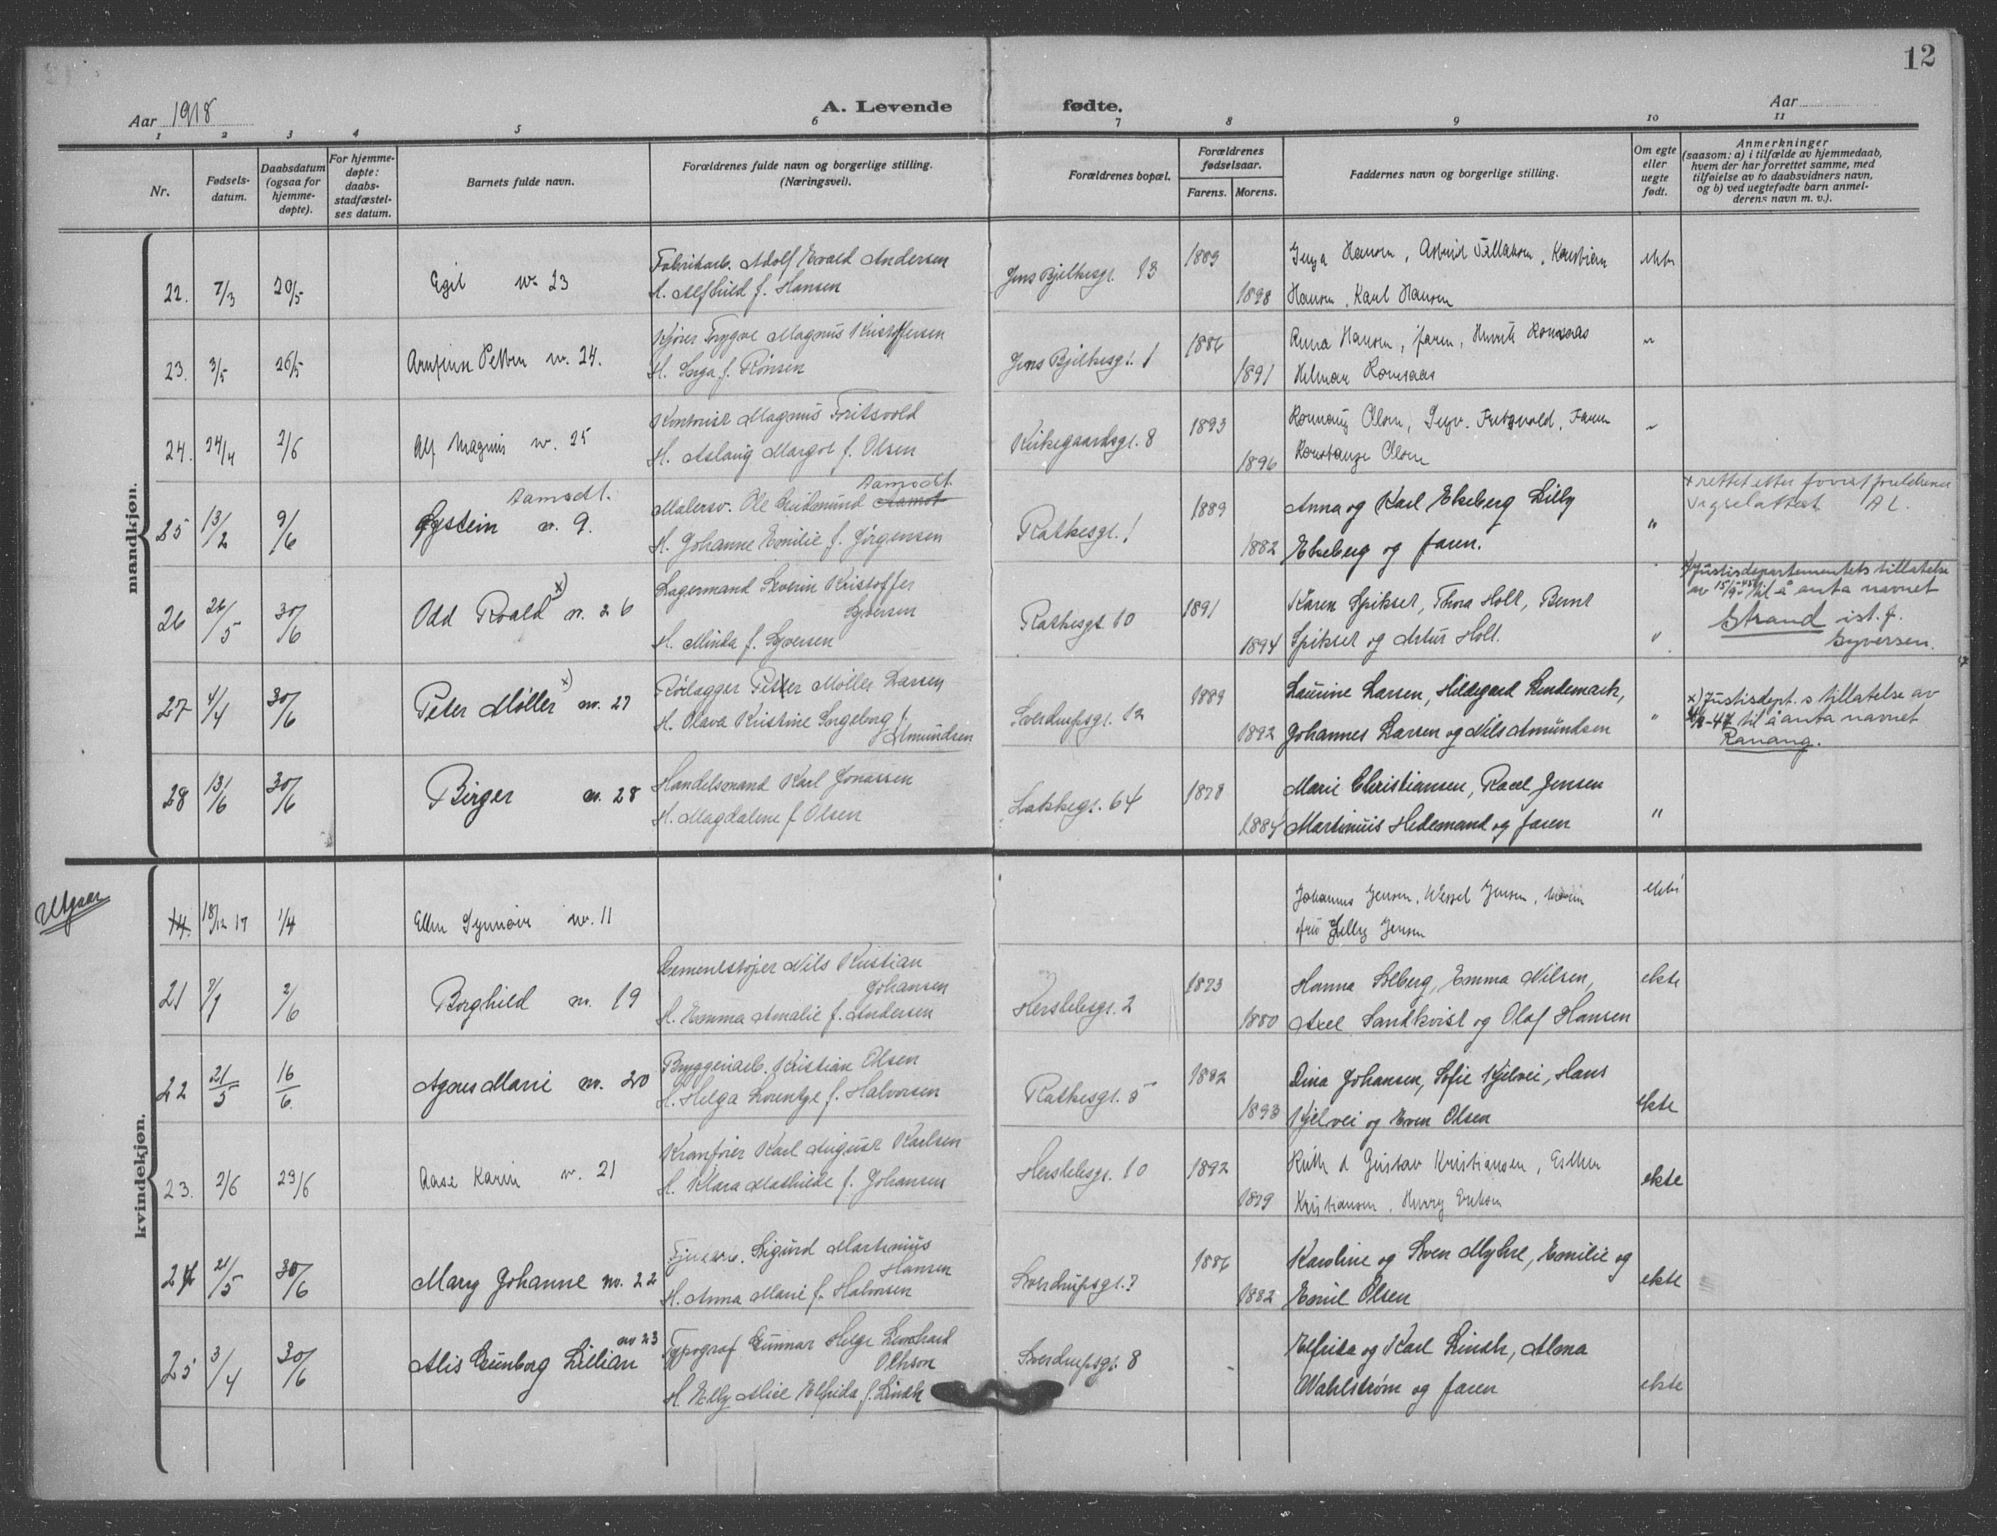 12
Aar 1918
A. Levende
fødte.
Aar
1 2 3 4 5 6 7 8 9 10 11
Nr.
Fødsels-
datum.
Daabsdatum
(ogsaa for
hjemme-
døpte).
For hjemme-
døpte:
daabs-
stadfæstel-
ses datum.
Barnets fulde navn.
Forældrenes fulde navn og borgerlige stilling.
(Næringsvei).
Forældrenes bopæl.
Forældrenes
fødselsaar.
Farens. Morens.
Faddernes navn og borgerlige stilling.
Om egte
eller
uegte
født.
Anmerkninger
(saasom: a) i tilfælde av hjemmedaab,
hvem der har forrettet samme, med
tilføielse av to daabsvidners navn,
og b) ved uegtefødte barn anmel-
derens navn m. v.).
mandkjøn.
22. 7/3 20/5 Egil nr. 23
Fabrikarb. Adolf Evald Andersen
H. Alfhild f. Hansen
Jens Bjelkesgt. 13
1889
1898
Inga Hansen, Astrid Kristian
Hansen, Karl Hansen
ekte
23. 3/5 26/5 Arnfinn Petter nr. 24.
Kjører Trygve Magnus Kristoffersen
H. Inga f. Rönsen
Jens Bjelkesgt. 1
1886
1891
Anna Hansen, faren, Henrik Romsaas
Hilmar Romsaas
"
24. 24/4 2/6 Alf Magnus nr. 25
Kontorist Magnus Fritsvold
H. Aslaug Margot f. Olsen
Kirkegaardsgt. 8
1893
1896
Ronnaug Olsen, Ingv. Fritzvold, Faren
Konstanse Olsen
"
25 13/2 9/6 Øystein Aamodt. n. 9.
Malersv. Ole Gudmund Aamot Aamodt.
H. Johanne Emilie f. Jørgensen
Rathkesgt. 1
1889
1882
Anna og Karl Ekeberg Lilly
Ekeberg og faren.
"
+ rettet etter foreldrenes
vigselattest A L.
26 26/5 30/6 Odd Roald x) n. 26
Lagermand Severin Kristoffer
Syversen
H. Minda f. Syversen
Rathkesgt. 10
1891
1894
Karen Spikset, Thora Holt, Bernt
Spikset og Artur Holt.
"
x) Justisdepartementets tillatelse
av 15/9-45 til å anta navnet
Strand ist. f.
Syversen.
27 4/4 30/6 Peter Møller x) nr. 27
Rørlægger Petter Møller Larsen
H. Olava Kristine Ingeborg f.
Amundsen
Sverdrupsgt. 12
1889
1892
Laurine Larsen, Hildegard Lindemark,
Johannes Larsen og Nils Amundsen
"
x) Justisdept.s tillatelse av
til å anta navnet
Ranang.
28 13/6 30/6 Birger nr. 28
Handelsmand Karl Jonassen
H. Magdalene f Olsen
Lakkegt. 64
1878
1884
Marie Christiansen, Rael Jensen
Martinius Hedemand og faren
"
kvindekjøn.
Utgaar
14. 18/12 17 1/4 Ellen Synnøve nr. 11
Johannes Jensen, Wessel Jensen,
fru Jelly Jensen
ekte
21 7/1 2/6 Borghild nr. 19
Cementstøper Nils Kristian
Johansen
H. Emma Amalie f. Andersen
Herslebsgt. 2
1873
1880
Hanna Solberg, Emma Nilsen,
Axel Sandkvist og Olaf Hansen
ekte
22 21/5 16/6 Agnes Marie nr. 20
Bryggeriarb. Kristian Olsen
H. Helga Lorentze f. Halvorsen
Rathkesgt. 5
1892
1893
Dina Johansen, Sofie Kjelvei, Hans
Kjelvei og Even Olsen
ekte
23. 2/6 23/6 Aase Karin nr. 21
Kranfører Karl August Karlsen
H. Klara Mathilde f. Johansen
Herslebsgt. 10
1892
1879
Ruth & Gustav Kristiansen, Esther
Kristiansen, Harry Eriksen
ekte
24 21/5 30/6 Mary Johanne nr. 22
Sigurd Martinius
Hansen
H. Anna Marie f. Halvorsen
Sverdrupsgt. 7
1886
1882
Karoline og Sven Myhre, Emilie og
Emil Olsen
ekte
25 3/4 30/6 Alis Gunborg Lillian nr 23
Typograf Gunnar Helge Leonhard
Olsson
H. Elly Alise Elfrida f. Lindh
Sverdrupsgt. 8
Elfrida og Karl Lindh, Alma
Wahlstrøm og faren
ekte